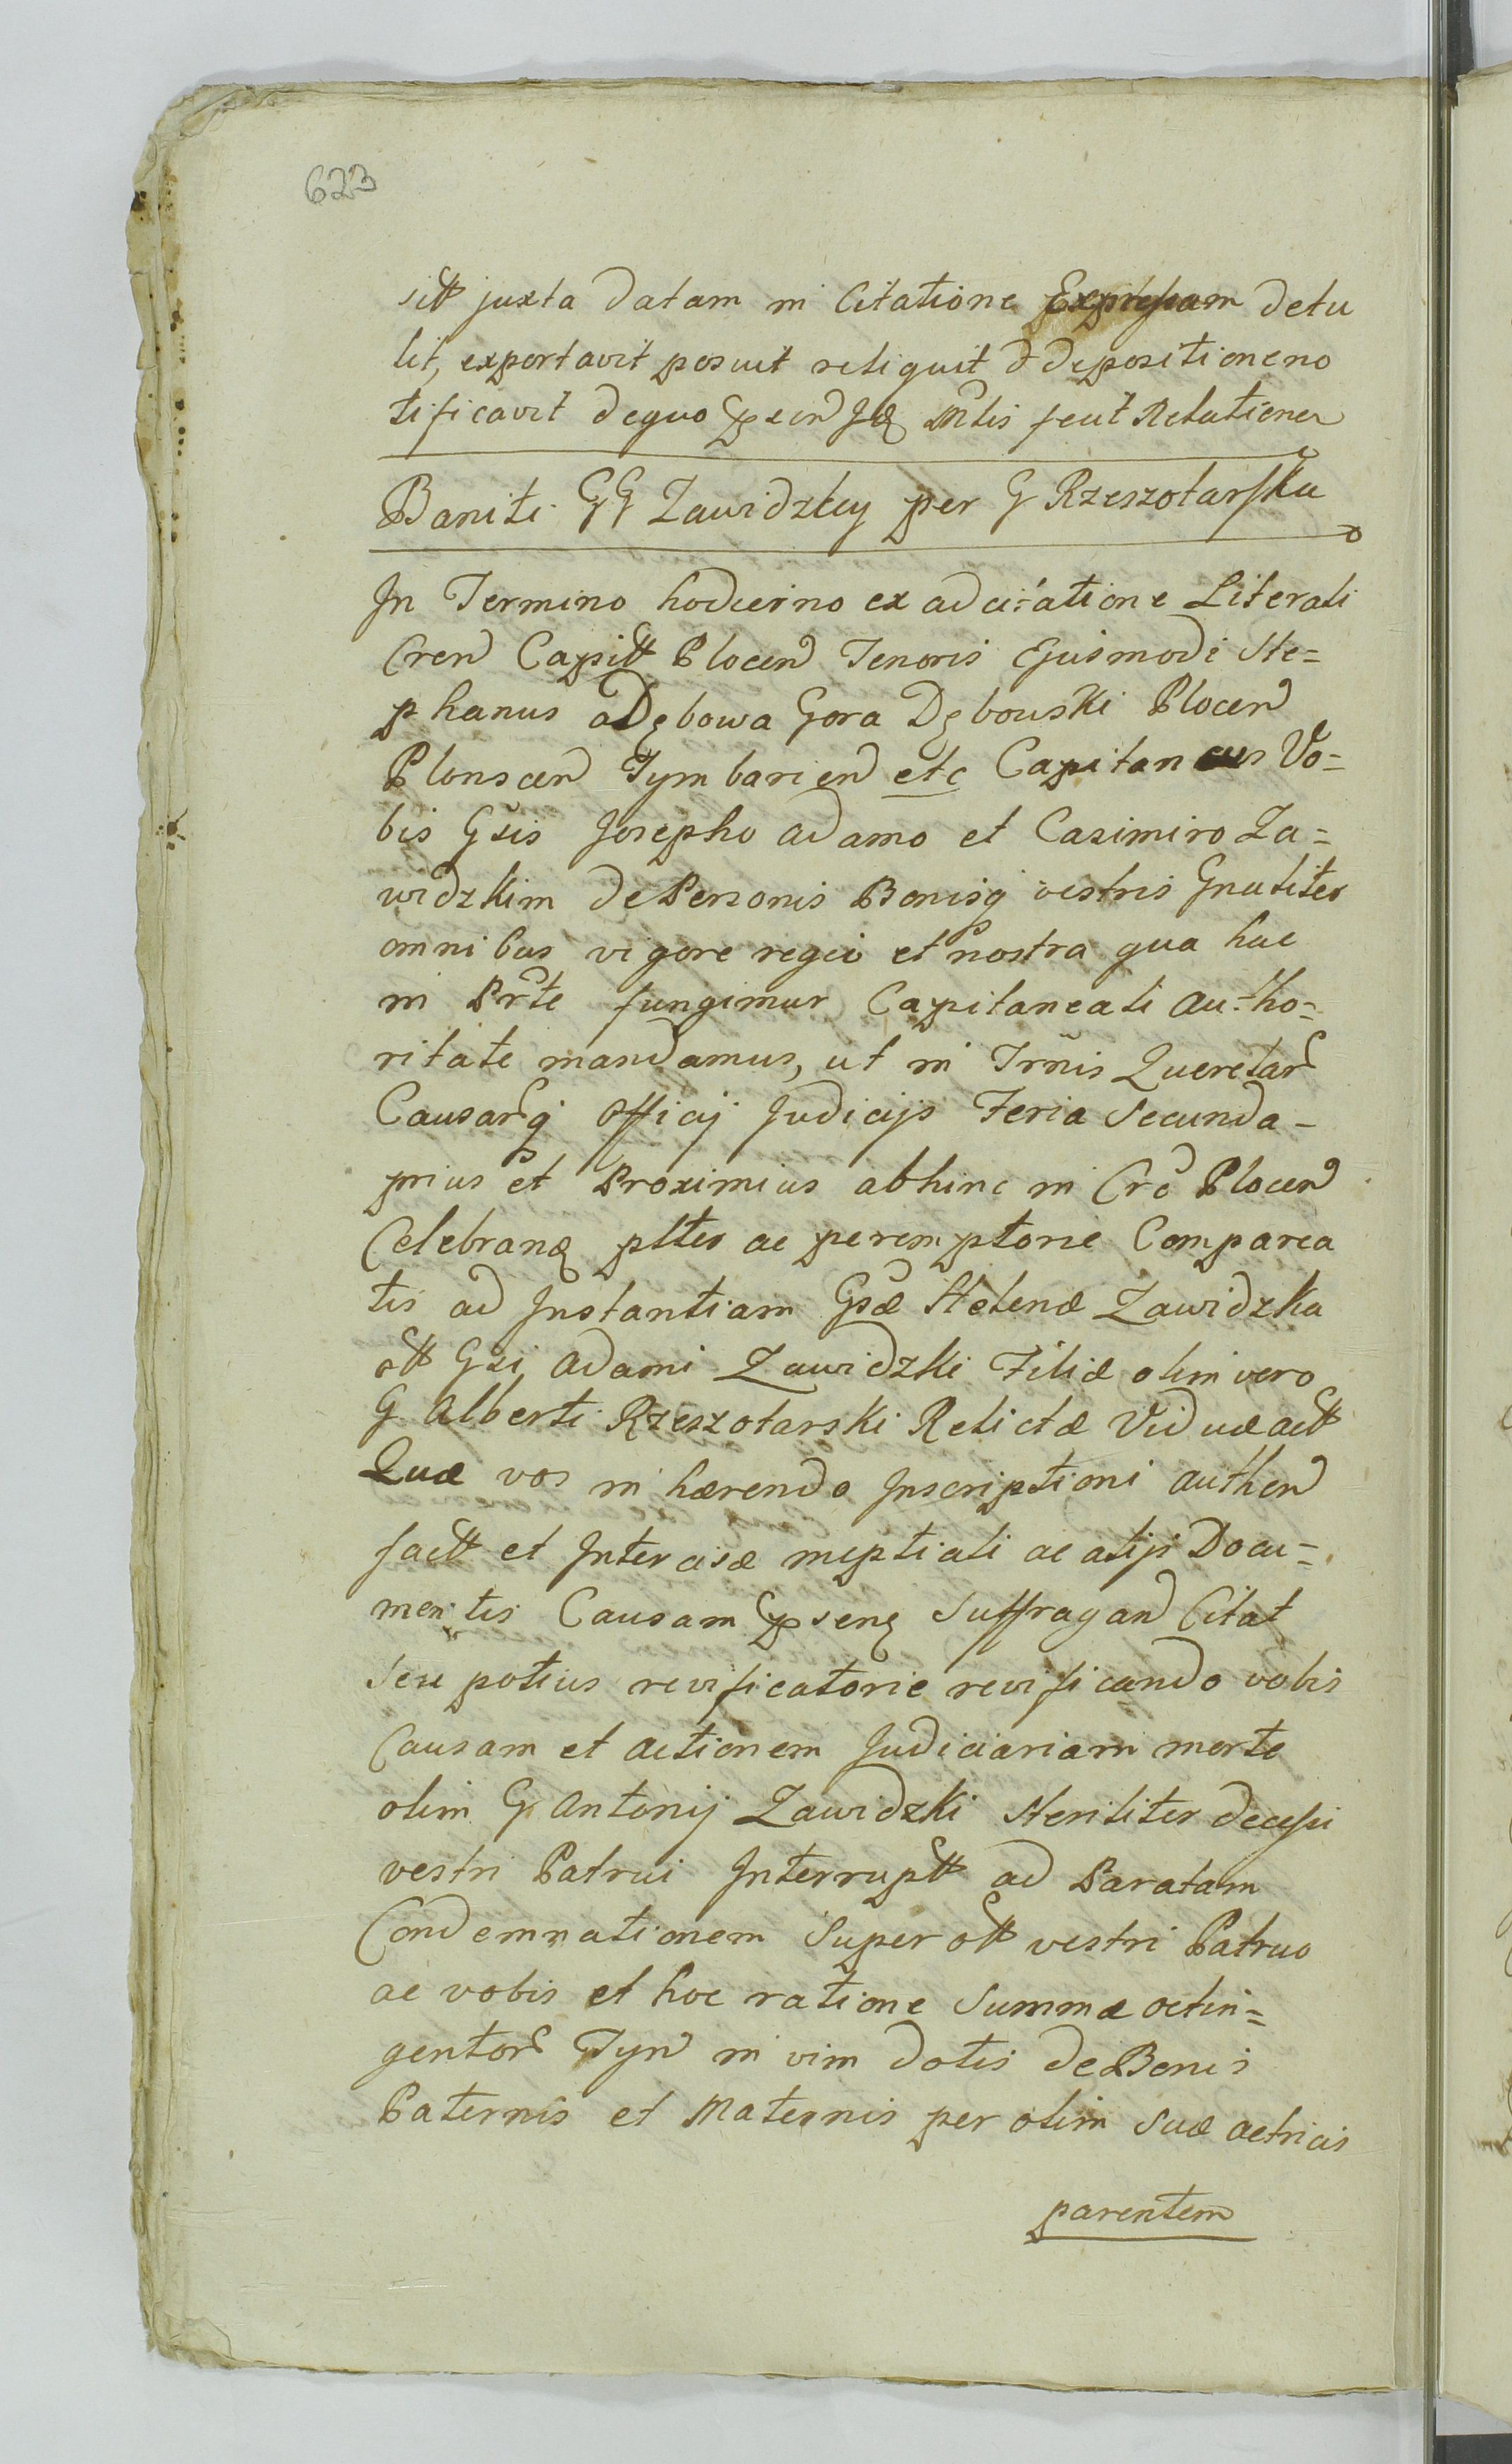 623
sitt juxta datam in Citatione Expressam detu
lit, exportavit posuit reliquit d depositione no
tificavit de quo pxen fecit Relationem
Baniti GG Zawidzkey per G Rzeszotarska
In Termino hodierno ex adcitatione Literali
Cren Capitt Plocen Tenoris Ejusmodi Ste=
phanus a Dębowa Gora Dębowski Plocen
Plonscen Tymbarien etc Capitaneus Vo=
bis Gsis Josepho Adamo et Casimiro Za=
widzkim de Personis Bonisq vestris Gnaliter
omnibus vigore regio et nostra qua hac
in Prte fungimur Capitaneali Autho=
ritate mandamus, ut in Trnis Querelar
Causarq Officij Judicijs Feria Secunda
prius et Proximius abhinc in Crc Plocen
Celebranę pltter ac peremptorie Comparea
tis ad Instantiam Gsæ Helenæ Zawidzka
ott Gsi Adami Zawidzki Filiæ olim vero
G Alberti Rzeszotarski Relictæ Viduæ actt
Quæ vos in hærendo Inscriptioni authen
factt et Intercisæ nuptiali ac alijs Docu=
mentis Causam pxsenę Suffragan Citat
seu potius revificatorie revificando vobis
Causam et Actionem Judiciariam morte
olim G Antonij Zawidzki Steriliter decessi
vestri Patrui Interruptt ad Paratam
Condemnationem Super ott vestri Patruo
ac vobis et hoc ratione Summæ octin=
gentor Tyn in vim dotis de Bonis
Paternis et Maternis per olim Suæ actricis
parentem